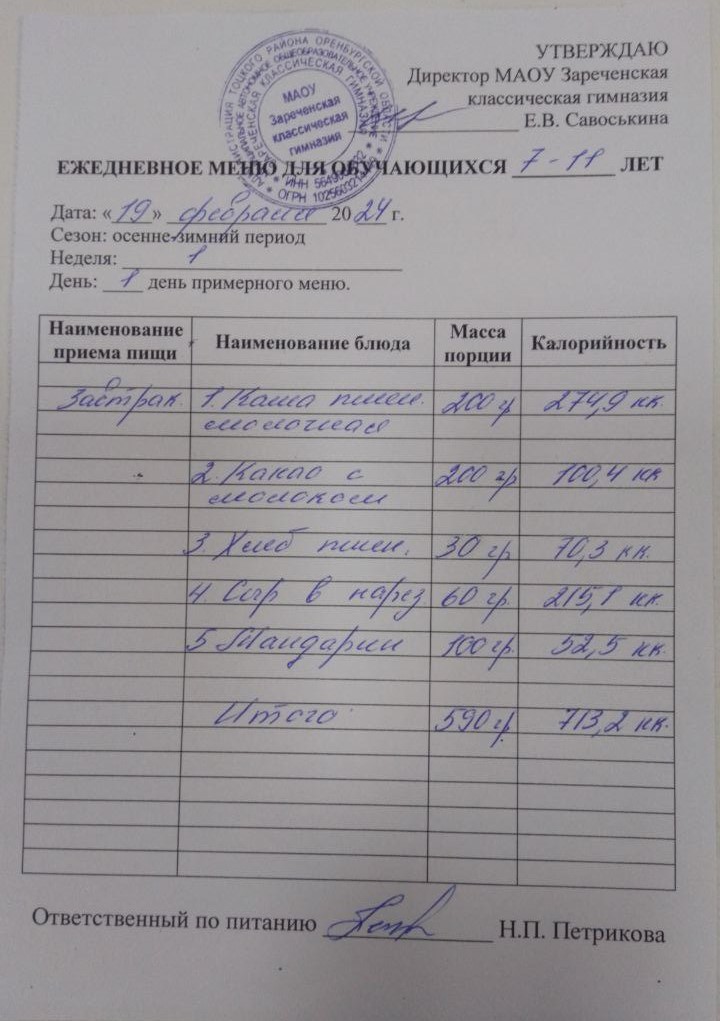 УТВЕРЖДАЮ
Директор МАОУ Зареченская
классическая гимназия
Е.В. Савоськина
МАОУ
Зареченская
классическая
гимназия
ЕЖЕДНЕВНОЕ МЕНЮ ДЛЯ ОБУЧАЮЩИХСЯ 7-11 ЛЕТ
Дата: «19» февраля 2024 г.
Сезон: осенне-зимний период
Неделя: 1
День: 1 день примерного меню.
Наименование приема пищи Наименование блюда Масса порции Калорийность
Завтрак. 1. Каша пшен. 200 гр 274,9 кк.
молочная
2. Какао с 200 гр 100,4 кк
молоком
3. Хлеб пшен. 30 гр 70,3 кк.
4. Сыр в нарез 60 гр. 215,1 кк.
5 Мандарин 100 гр. 52,5 кк.
Итого 590 гр. 713,2 кк.
Ответственный по питанию Н.П. Петрикова